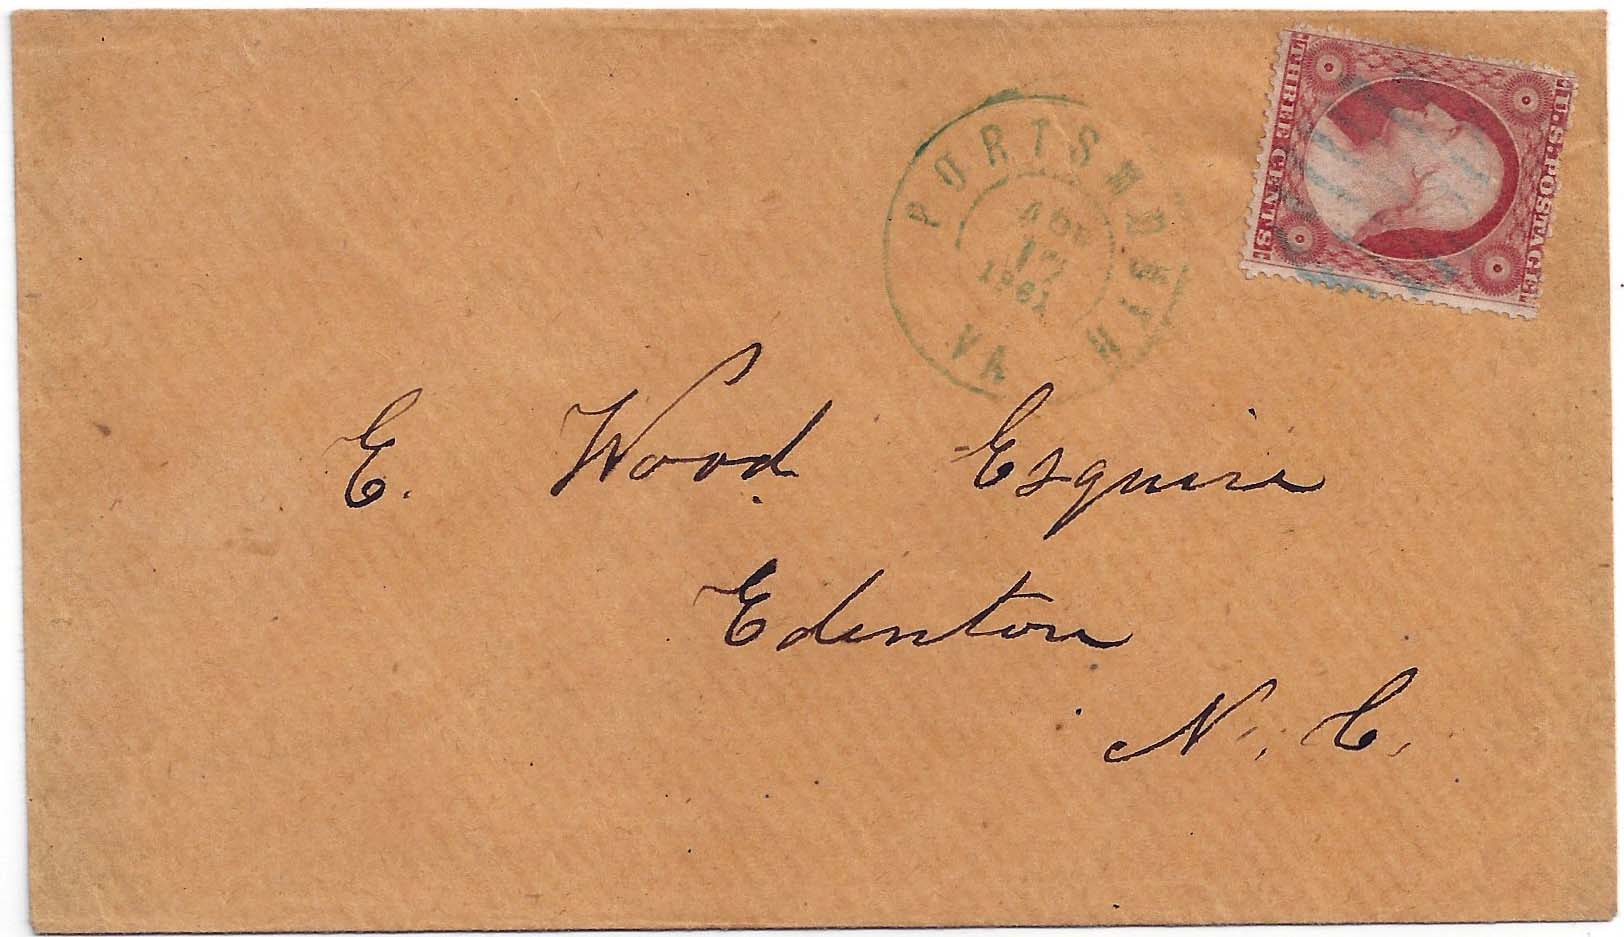 PORTSMOUTH
VA
1861
U.S. POSTAGE
THREE CENTS
E. Wood Esquire
Edenton
N. C.